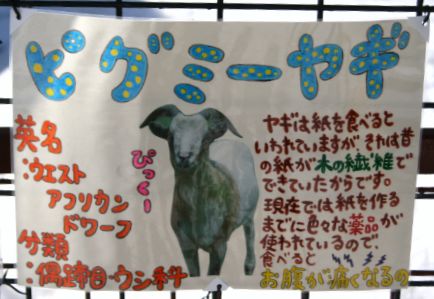 ピグミーヤギ
英名
:ウエスト
アフリカン
ドワーフ
分類
:偶蹄目・ウシ科
ぴっくー
ヤギは紙を食べると
いわれていますが、それは昔
の紙が木の繊維で
できていたからです。
現在では紙を作る
までに色々な薬品が
使われているので、
食べると
お腹が痛くなるの